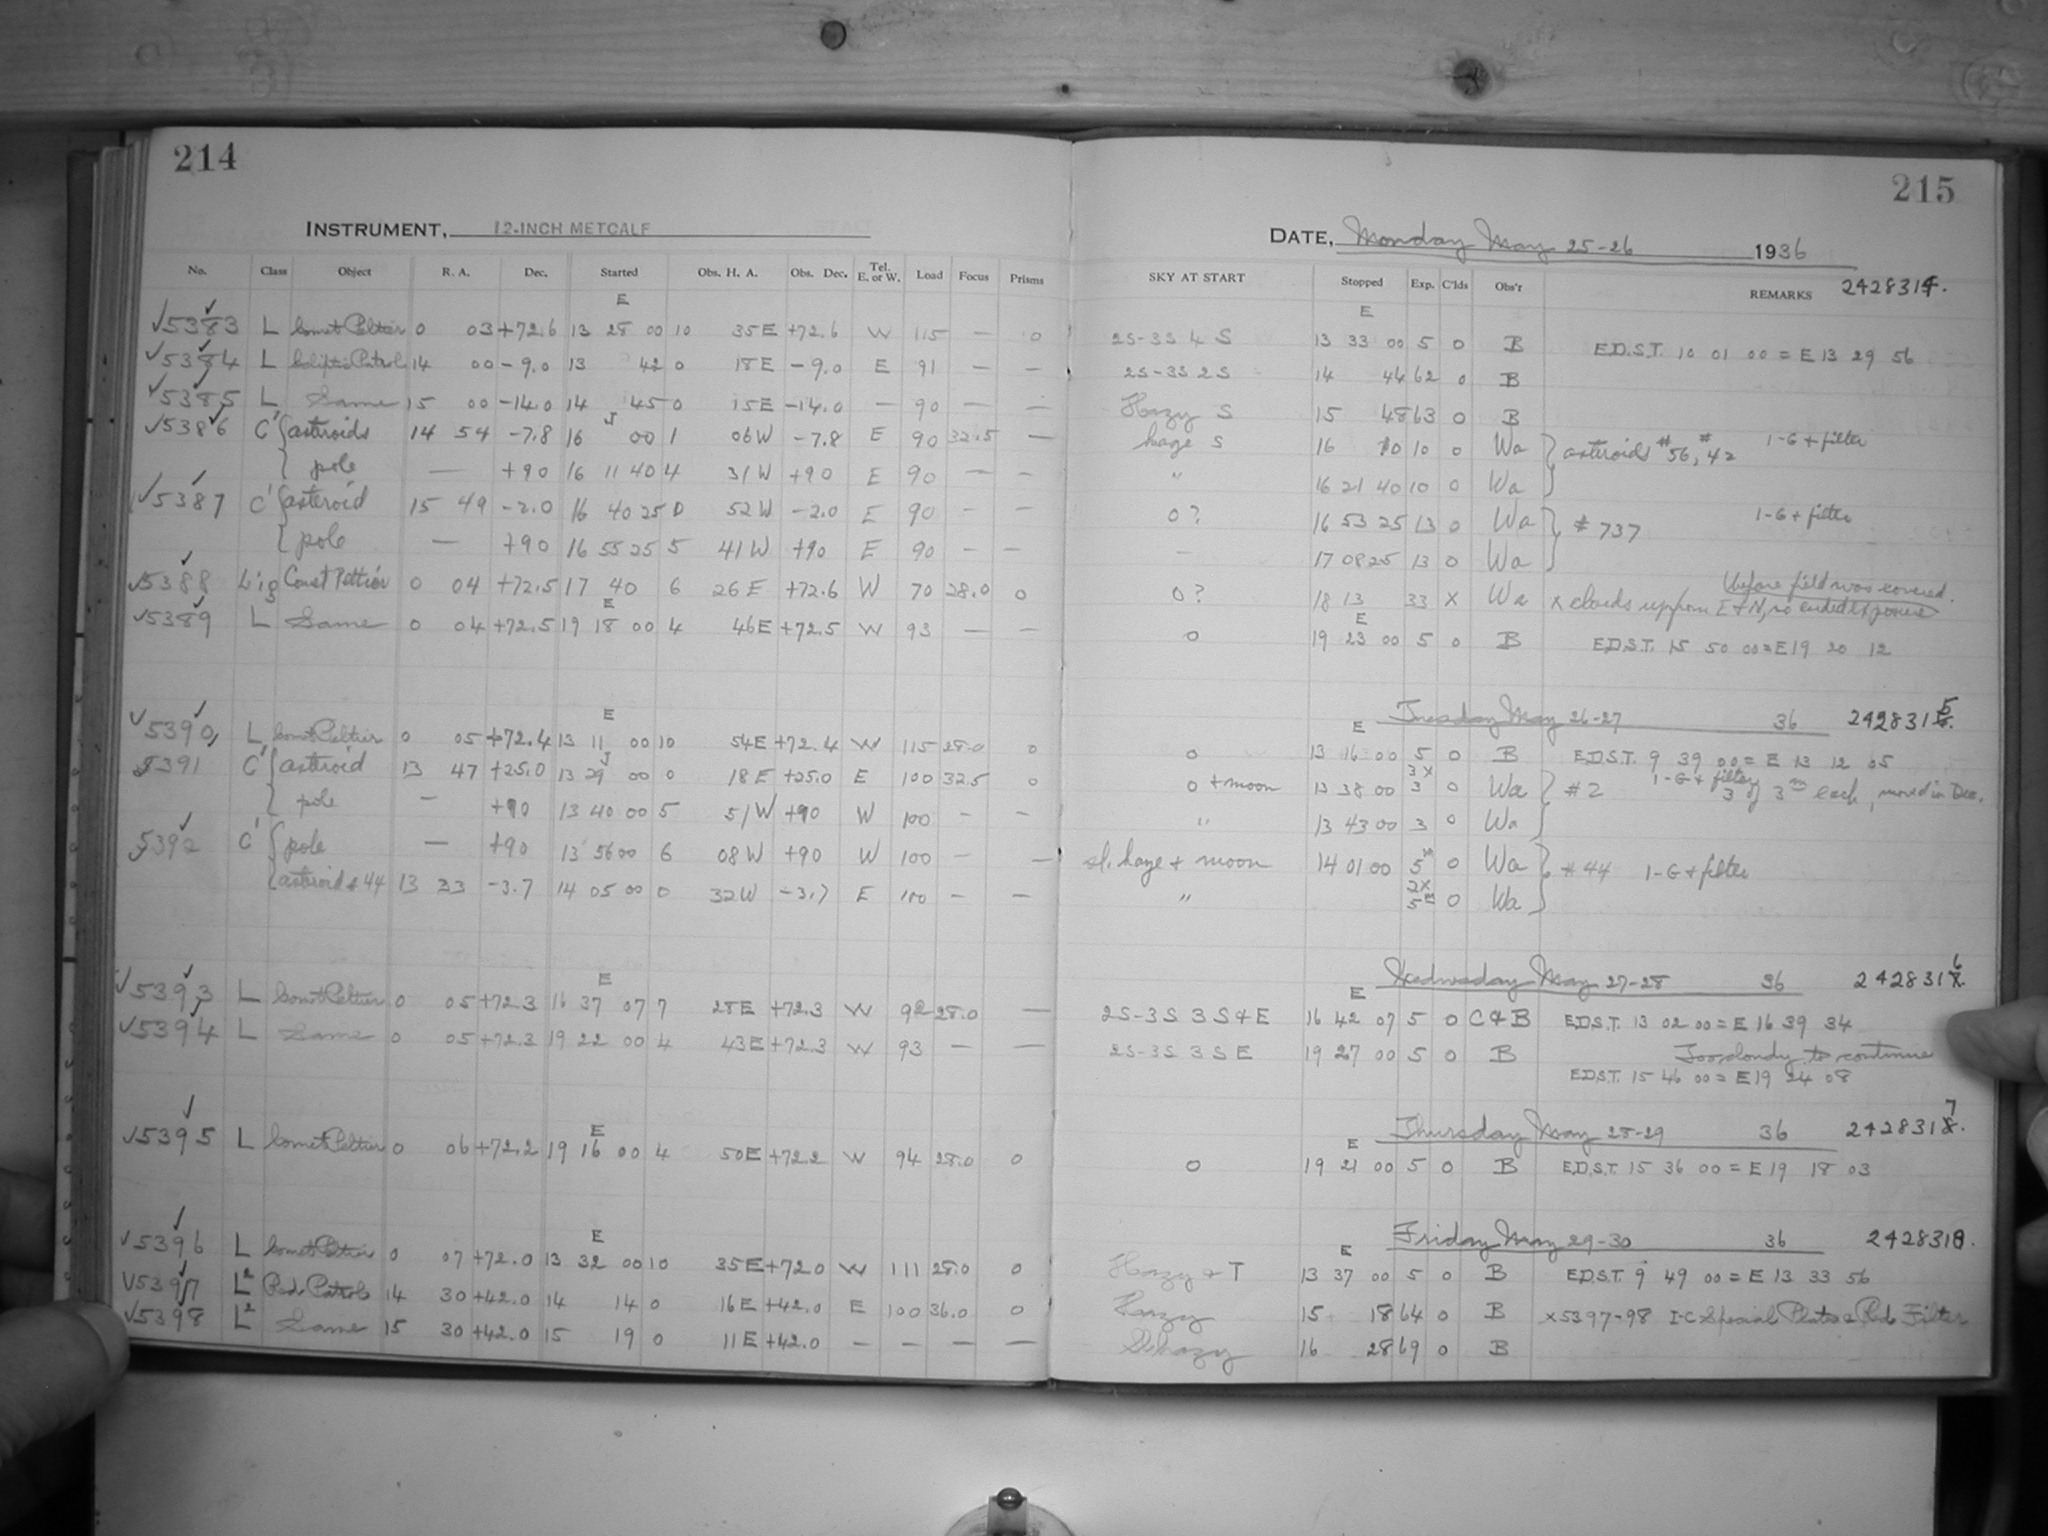 214
INSTRUMENT, 12-INCH METCALF
No. Class Object R. A. Dec. Started Obs. H. A. Obs. Dec. Tel. E. or W. Load Focus Prisms
E
5383 L Comet Peltier 0 03 +72.6 13 28 00 10 35E +72.6 W 115 — 0
5384 L Ecliptic Patrol 14 00 -9.0 13 42 0 18E -9.0 E 91 — —
5385 L Same 15 00 -14.0 14 45 0 15E -14.0 — 90 — —
J
5386 C' asteroids 14 54 -7.8 16 00 1 06W -7.8 E 90 32.5 —
pole — +90 16 11 40 4 31W +90 E 90 — —
5387 C' asteroid 15 49 -2.0 16 40 25 0 52W -2.0 E 90 — —
pole — +90 16 55 25 5 41W +90 E 90 — —
5388 Lig Comet Peltier 0 04 +72.5 17 40 6 26E +72.6 W 70 28.0 0
E
5389 L Same 0 04 +72.5 19 18 00 4 46E +72.5 W 93 — —
E
5390 L Comet Peltier 0 05 +72.4 13 11 00 10 54E +72.4 W 115 28.0 0
J
5391 C' asteroid 13 47 +25.0 13 29 00 0 18E +25.0 E 100 32.5 0
pole — +90 13 40 00 5 51W +90 W 100 — —
5392 C' pole — +90 13 56 00 6 08W +90 W 100 — —
asteroid #44 13 33 -3.7 14 05 00 0 32W -3.7 E 100 — —
E
5393 L Comet Peltier 0 05 +72.3 16 37 07 7 28E +72.3 W 92 28.0 —
5394 L Same 0 05 +72.3 19 22 00 4 43E +72.3 W 93 — —
E
5395 L Comet Peltier 0 06 +72.2 19 16 00 4 50E +72.2 W 94 28.0 0
E
5396 L Comet Peltier 0 07 +72.0 13 32 00 10 35E +72.0 W 111 28.0 0
5397 L2 Red Patrol 14 30 +42.0 14 14 0 16E +42.0 E 100 36.0 0
5398 L2 Same 15 30 +42.0 15 19 0 11E +42.0 — — — —
215
DATE, Monday May 25-26 1936
SKY AT START Stopped Exp. C'lds Obs'r REMARKS 2428314.
E
2S-3S 4 S 13 33 00 5 0 B E.D.S.T. 10 01 00 = E 13 29 56
2S-3S 2S 14 44 62 0 B
Hazy S 15 48 63 0 B
haze S 16 10 10 0 Wa asteroids #56, #42 1-G + filter
" 16 21 40 10 0 Wa
0? 16 53 25 13 0 Wa #737 1-G + filter
— 17 08 25 13 0 Wa
before field was covered.
0? 18 13 33 X Wa x clouds up from E + N, so ended exposure
E
0 19 23 00 5 0 B E.D.S.T. 15 50 00 = E 19 20 12
Tuesday May 26-27 36 2428315.
E
0 13 16 00 5 0 B E.D.S.T. 9 39 00 = E 13 12 05
0 + moon 13 38 00 3x 3 0 Wa #2 1-G + filter 3 of 3m each, moved in Dec.
" 13 43 00 3 0 Wa
sl. haze + moon 14 01 00 5m 0 Wa #44 1-G + filter
" 2x 5m 0 Wa
Wednesday May 27-28 36 2428316.
E
2S-3S 3 S & E 16 42 07 5 0 C & B E.D.S.T. 13 02 00 = E 16 39 34
2S-3S 3 S E 19 27 00 5 0 B Too cloudy to continue
E.D.S.T. 15 46 00 = E 19 24 08
Thursday May 28-29 36 2428317.
E
0 19 21 00 5 0 B E.D.S.T. 15 36 00 = E 19 18 03
Friday May 29-30 36 2428318.
E
Hazy & T 13 37 00 5 0 B E.D.S.T. 9 49 00 = E 13 33 56
Hazy 15 18 64 0 B x5397-98 I-C Special Plates & Red Filter
Sl. hazy 16 28 69 0 B